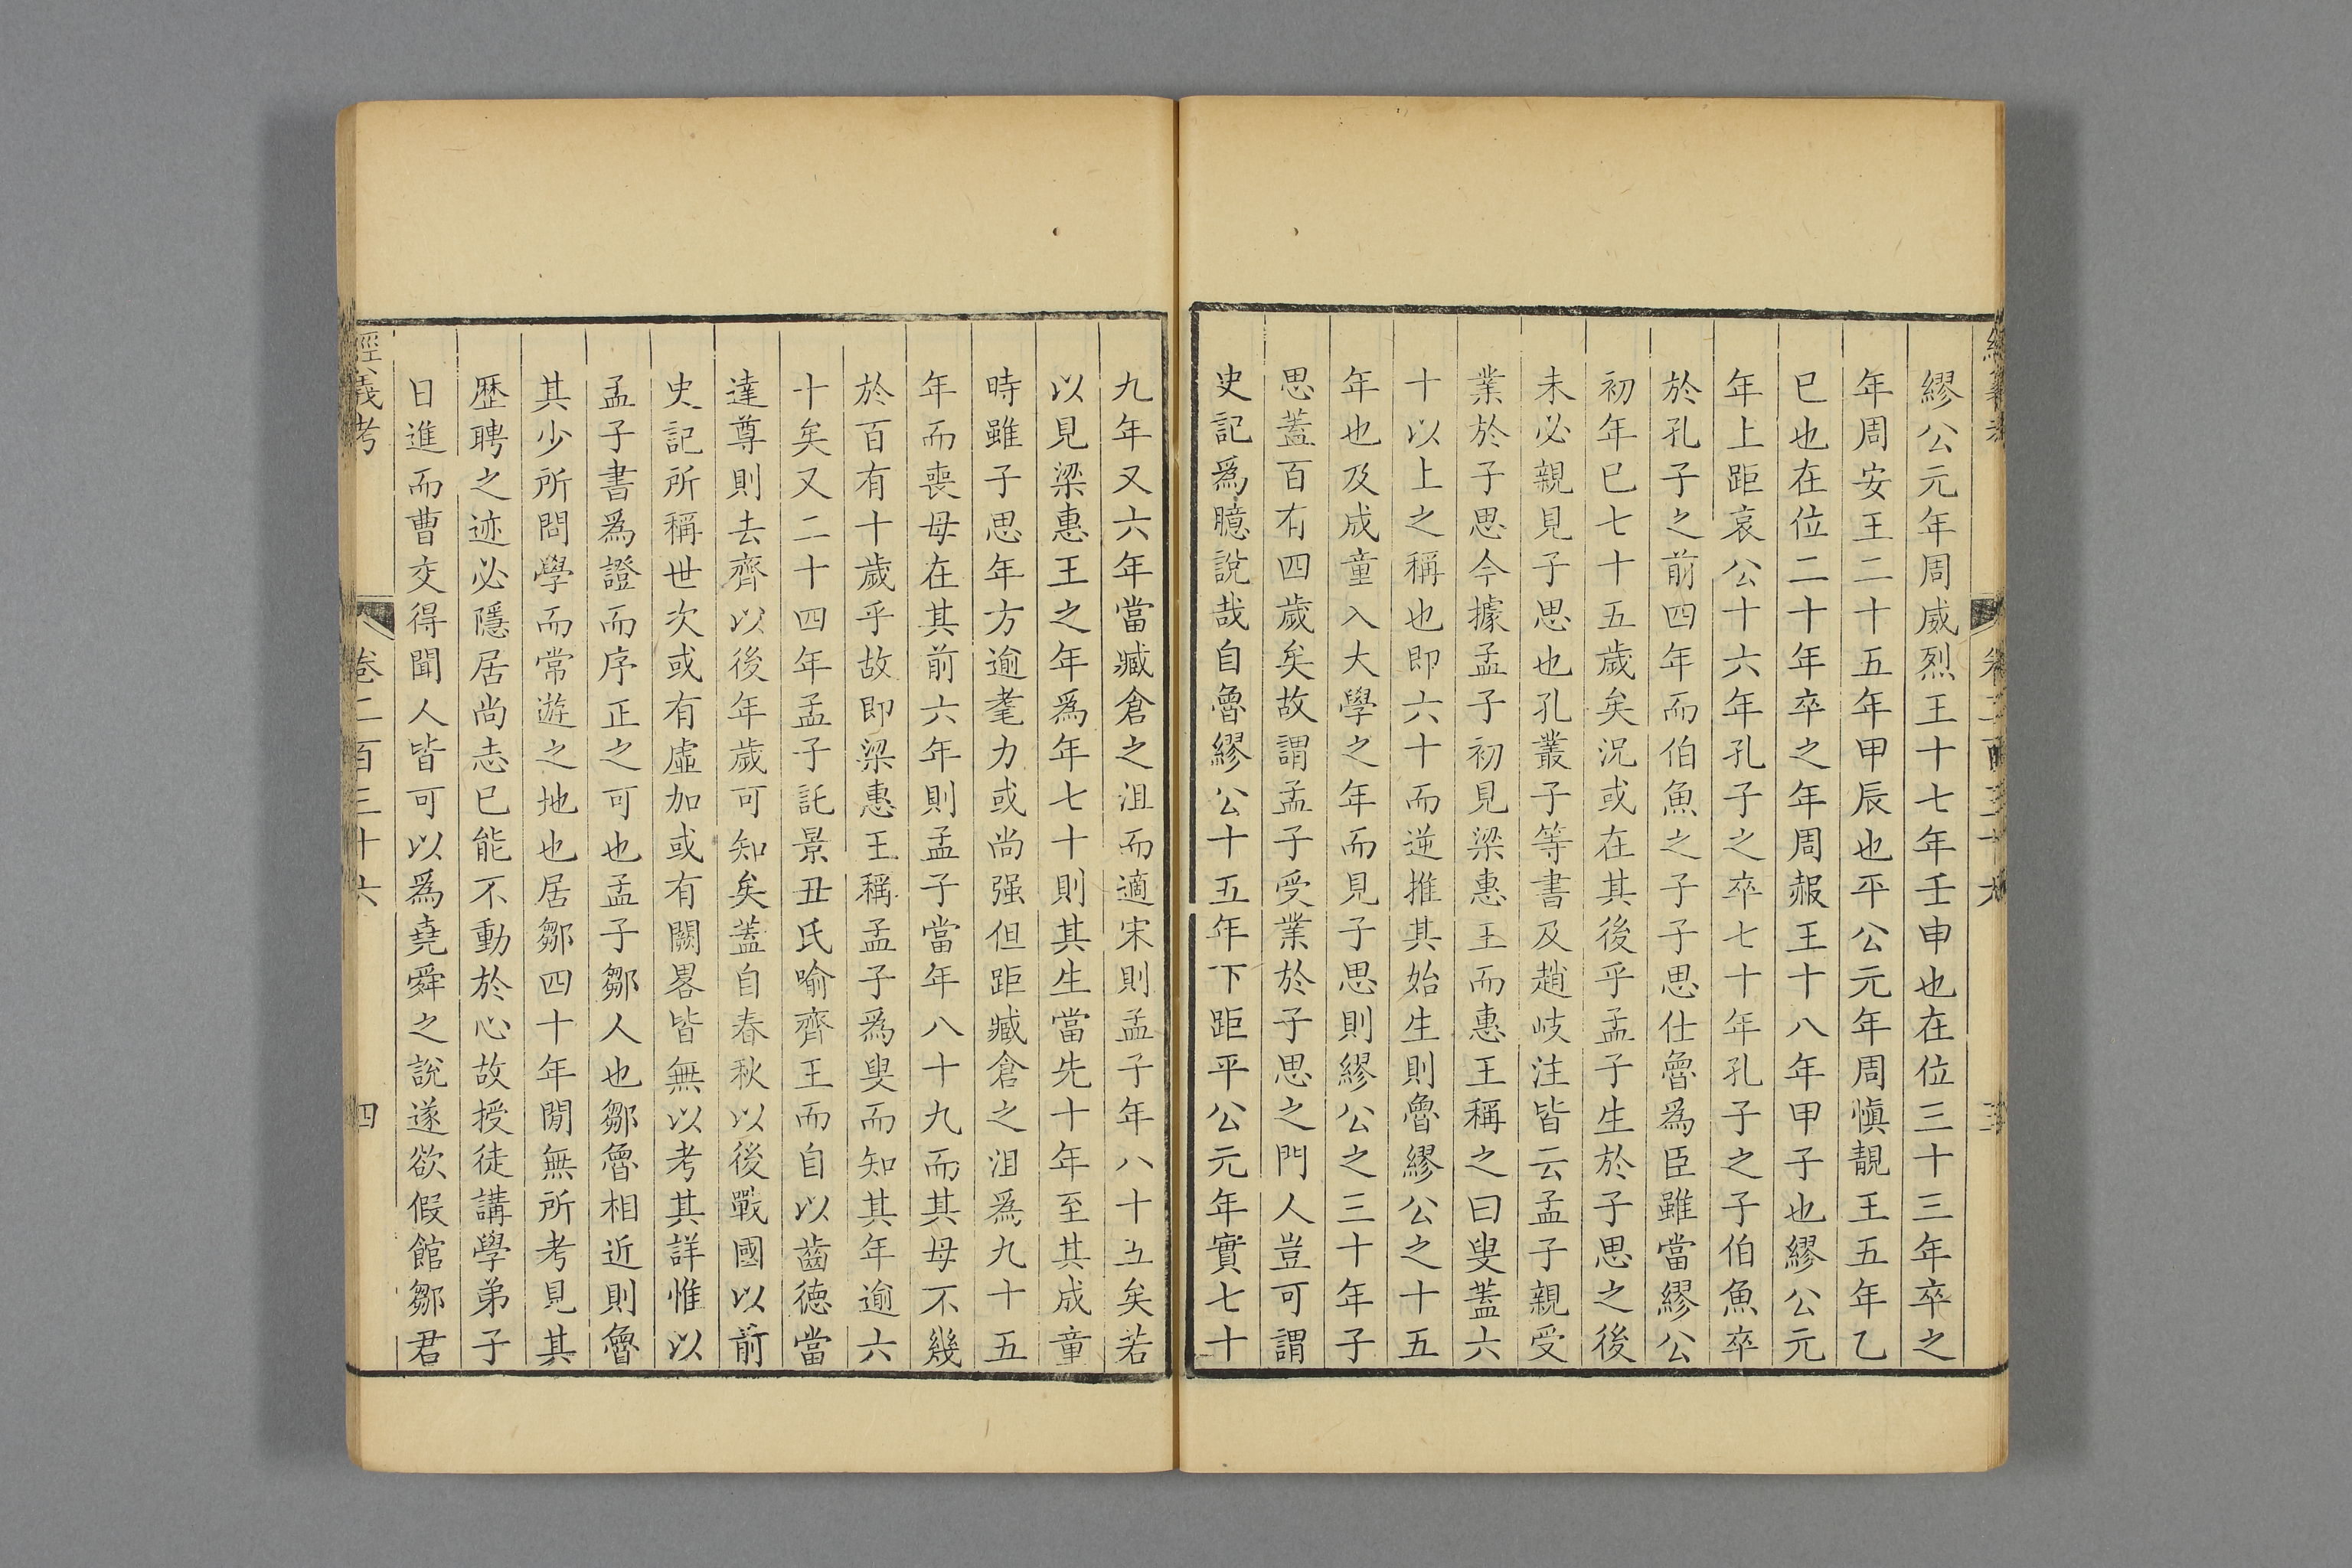 繆公元年周威烈王十七年壬申也在位三十三年卒之
年周安王二十五年甲辰也平公元年周愼靚王五年乙
巳也在位二十年卒之年周赧王十八年甲子也繆公元
年上距哀公十六年孔子之卒七十年孔子之子伯魚卒
於孔子之前四年而伯魚之子子思仕魯爲臣雖當繆公
初年巳七十五歲矣況或在其後乎孟子生於子思之後
未必親見子思也孔叢子等書及趙岐注皆云孟子親受
業於子思今據孟子初見梁惠王而惠王稱之曰叟蓋六
十以上之稱也即六十而逆推其始生則魯繆公之十五
年也及成童入大學之年而見子思則繆公之三十年子
思蓋百有四歲矣故謂孟子受業於子思之門人豈可謂
史記爲臆說哉自魯繆公十五年下距平公元年實七十
九年又六年當臧倉之沮而適宋則孟子年八十五矣若
以見梁惠王之年爲年七十則其生當先十年至其成童
時雖子思年方逾耄力或尚强但距臧倉之沮爲九十五
年而喪母在其前六年則孟子當年八十九而其母不幾
於百有十歲乎故即梁惠王稱孟子爲叟而知其年逾六
十矣又二十四年孟子託景丑氏喻齊王而自以齒德當
達尊則去齊以後年歲可知矣蓋自春秋以後戰國以前
史記所稱世次或有虛加或有闕畧皆無以考其詳惟以
孟子書爲證而序正之可也孟子鄒人也鄒魯相近則魯
其少所問學而常遊之地也居鄒四十年閒無所考見其
歷聘之迹必隱居尚志巳能不動於心故授徒講學弟子
日進而曹交得聞人皆可以爲堯舜之說遂欲假館鄒君
經義考
卷二百三十六
四